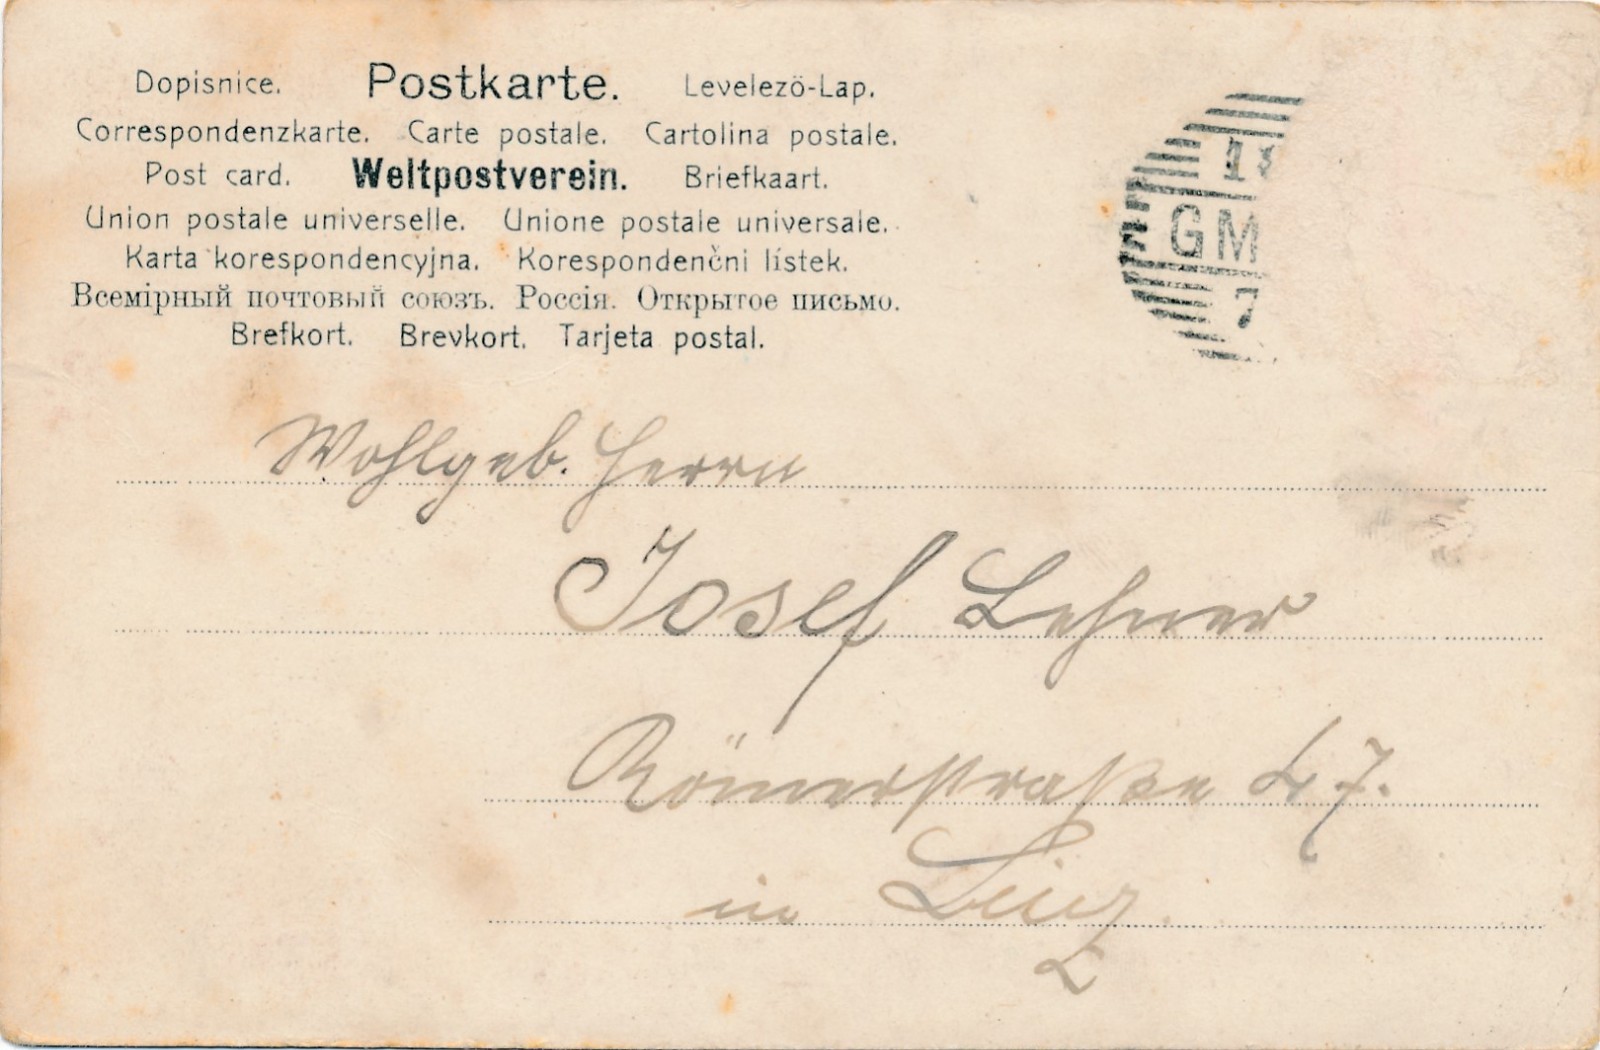 Dopisnice. Postkarte. Levelezö-Lap.
Correspondenzkarte. Carte postale. Cartolina postale.
Post card. Weltpostverein. Briefkaart.
Union postale universelle. Unione postale universale.
Karta korespondencyjna. Korespondenčni lístek.
Всемірный почтовый союзъ. Россія. Открытое письмо.
Brefkort. Brevkort. Tarjeta postal.
GM
7
Wohlgeb. Herrn
Josef Lehner
Römerstraße 47.
in Linz